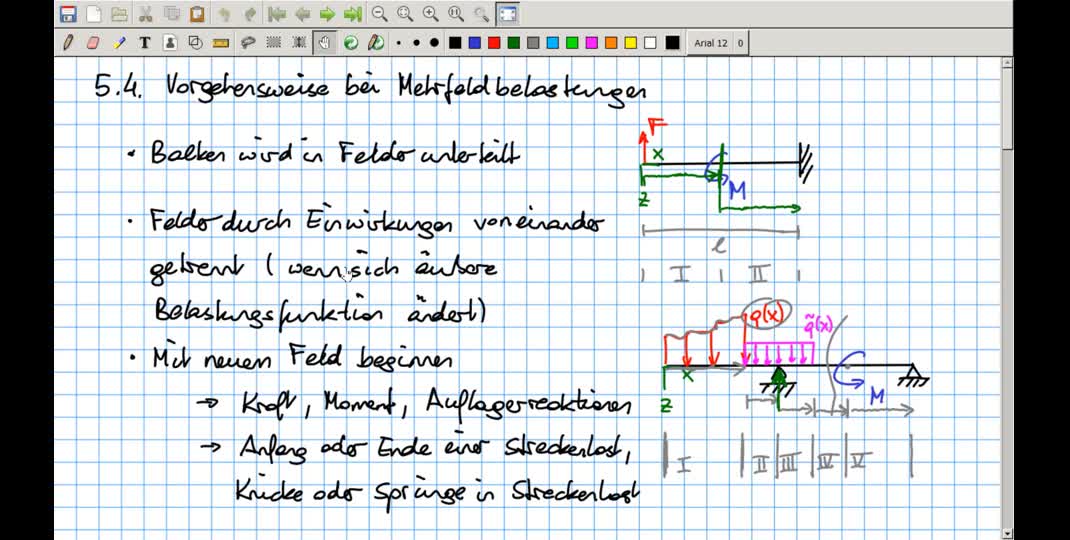 Arial 12 0
5.4. Vorgehensweise bei Mehrfeldbelastungen
• Balken wird in Felder unterteilt
• Felder durch Einwirkungen voneinander
getrennt ( wenn sich äußere
Belastungsfunktion ändert)
• Mit neuem Feld beginnen
→ Kraft, Moment, Auflagerreaktionen
→ Anfang oder Ende einer Streckenlast,
Knicke oder Sprünge in Streckenlast
F
x
M
z
l
I II
q(x)
q̃(x)
x
M
z
I II III IV V